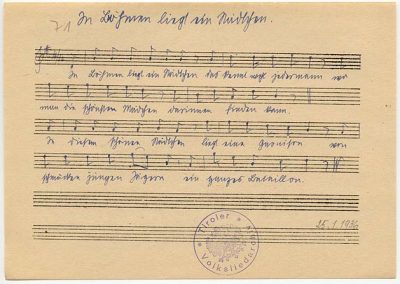 71 In Böhmen liegt ein Städtchen.
In Böhmen liegt ein Städtchen das kennt wohl jedermann wo
man die schönsten Mädchen darinnen finden kann.
In diesem schönen Städtchen liegt eine Garnison von
schmucken jungen Jägern ein ganzes Bataillon.
Tiroler Volksliedarchiv
25.1.1936